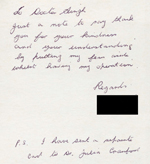 To Doctor Singh
Just a note to say thank
you for your kindness
and your understanding
by putting my fears
whilst having my operation
Regards
P.S. I have sent a separate
card to Dr. Julia Crawford